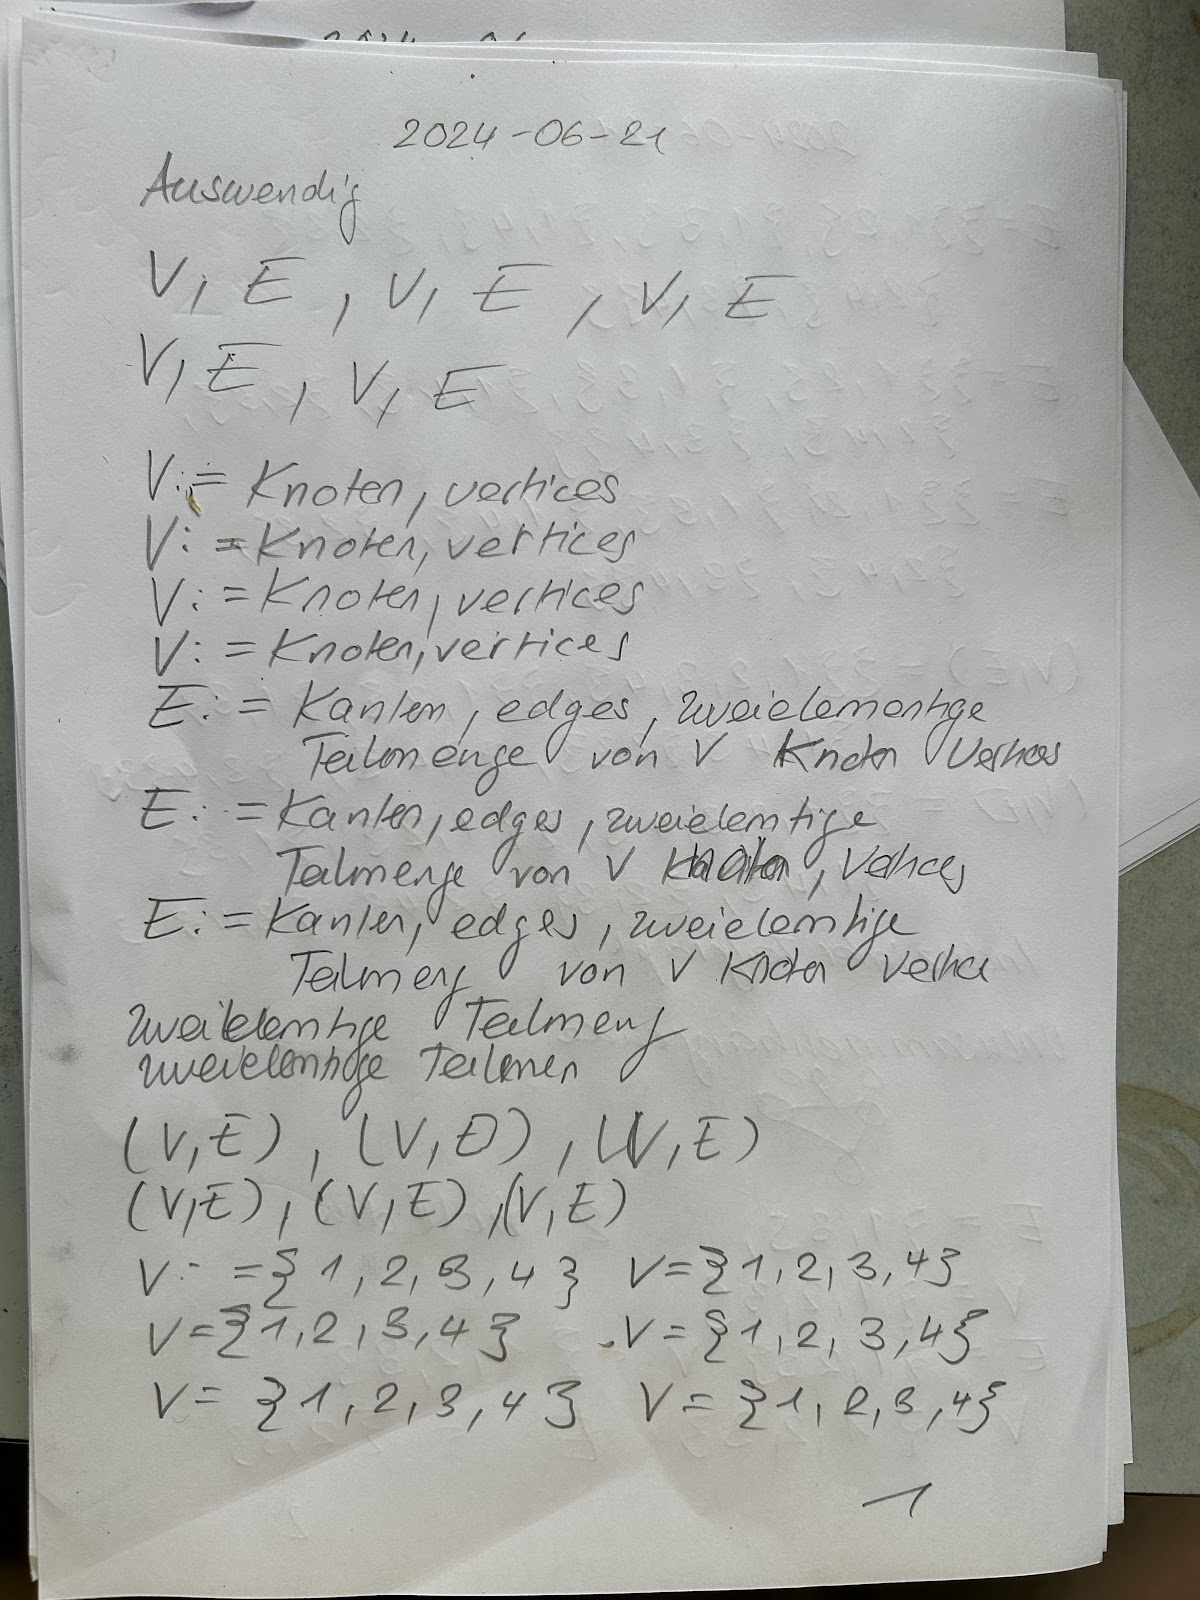 2024-06-21
Auswendig
V, E, V, E, V, E
V, E, V, E
V:= Knoten, vertices
V:= Knoten, vertices
V:= Knoten, vertices
V:= Knoten, vertices
E:= Kanten, edges, zweielementige
Teilmenge von V Knoten Vertices
E:= Kanten, edges, zweielemtige
Teilmenge von V Knoten, Vertices
E:= Kanten, edges, zweielemtige
Teilmeng von V Knoten
zweielemtige Teilmeng
zweielemtige Teilmen
(V, E), (V, E), (V, E)
(V, E), (V, E), (V, E)
V:={1, 2, 3, 4} V={1, 2, 3, 4}
V={1, 2, 3, 4} V={1, 2, 3, 4}
V={1, 2, 3, 4} V={1, 2, 3, 4}
1